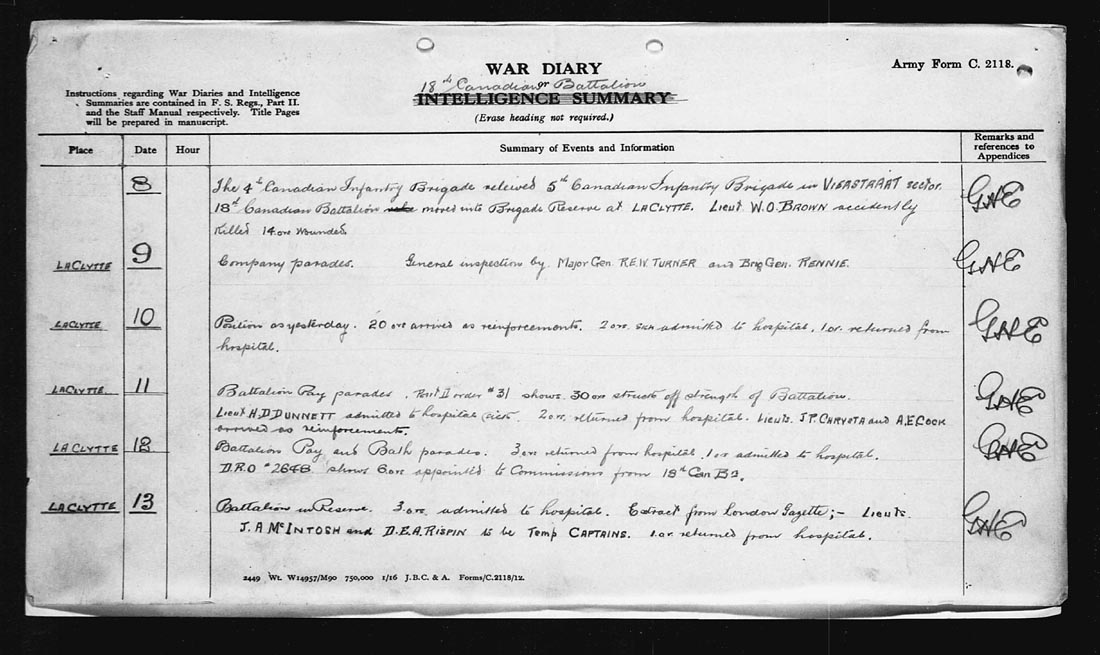 WAR DIARY
Army Form C. 2118.
18th Canadian or Battalion
INTELLIGENCE SUMMARY
(Erase heading not required.)
Instructions regarding War Diaries and Intelligence
Summaries are contained in F. S. Regs., Part II.
and the Staff Manual respectively. Title Pages
will be prepared in manuscript.
Place Date Hour Summary of Events and Information Remarks and references to Appendices
8 The 4th Canadian Infantry Brigade releived 5th Canadian Infantry Brigade in VIERSTRAAT sector. GHE
18th Canadian Battalion moved into Brigade Reserve at LACLYTTE. Lieut W.O. BROWN accidently
killed 14 or wounded.
LACLYTTE 9 Company parades. General inspection by Major Gen. R.E.W. TURNER and Brig Gen. RENNIE. GHE
LACLYTTE 10 Position as yesterday. 20 ore arrived as reinforcements. 2 or. admitted to hospital. 1 or. returned from GHE
hospital.
LACLYTTE. 11 Battalion Pay parades. Part II order #31 shows. 30 or struck off strength of Battalion. GHE
Lieut H.D DUNNETT admitted to hospital sick. 2 or. returned from hospital. Lieuts. J.P. and A.E COCK
arrived as reinforcements.
LACLYTTE 12 Battalion Pay and Bath parades. 3 or returned from hospital. 1 or admitted to hospital. GHE
D.R.O #2648 shows 6 or appointed to Commissions from 18th Can Bn.
LACLYTTE 13 Battalion in Reserve. 3 or. admitted to hospital. Extract from London Gazette;- Lieuts. GHE
J.A McINTOSH and D.E.A. RISPIN to be Temp CAPTAINS. 1 or. returned from hospital.
2449 Wt. W14957/M90 750,000 1/16 J.B.C. & A. Forms/C.2118/12.